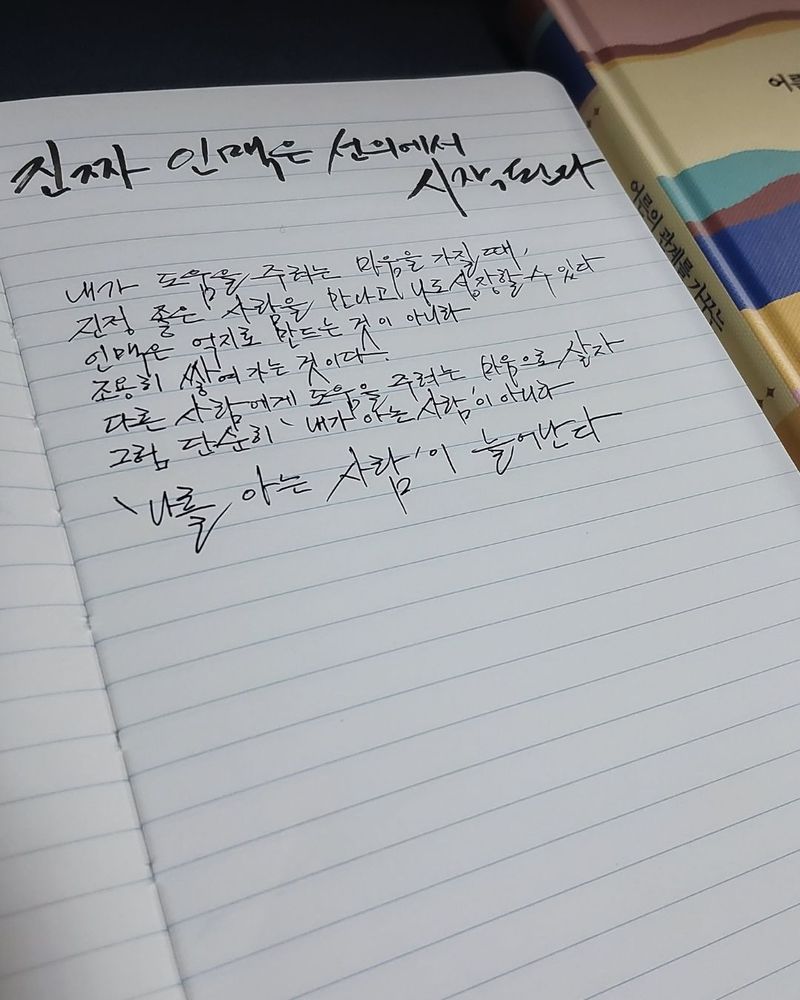 진짜 인맥은 선의에서
시작된다
내가 도움을 주려는 마음을 가질 때,
진정 좋은 사람을 만나고 나도 성장할 수 있다
인맥은 억지로 만드는 것이 아니라
조용히 쌓여가는 것이다.
다른 사람에게 도움을 주려는 마음으로 살자
그럼 단순히 '내가 아는 사람'이 아니라
'나를 아는 사람'이 늘어난다
어른의 관계를 가꾸는
어른